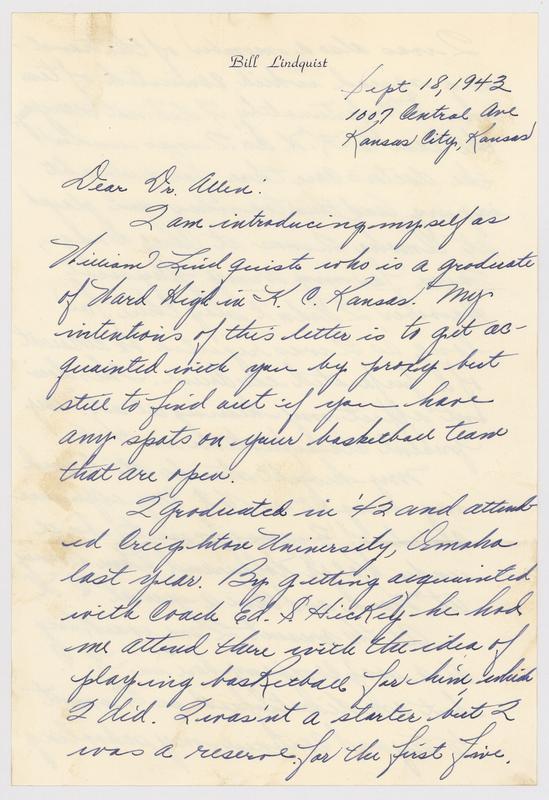 Bill Lindquist
Sept 18, 1943
1007 Central Ave
Kansas City, Kansas
Dear Dr. Allen:
I am introducing myself as
William Lindquist who is a graduate
of Ward High in K. C. Kansas. My
intentions of this letter is to get ac-
quainted with you by proxy but
still to find out if you have
any spots on your basketball team
that are open.
I graduated in '42 and attend-
ed Creighton University, Omaha
last year. By getting acquainted
with Coach Ed. S. Hickey he had
me attend there with the idea of
playing basketball for him, which
I did. I was'nt a starter but I
was a reserve for the first five.